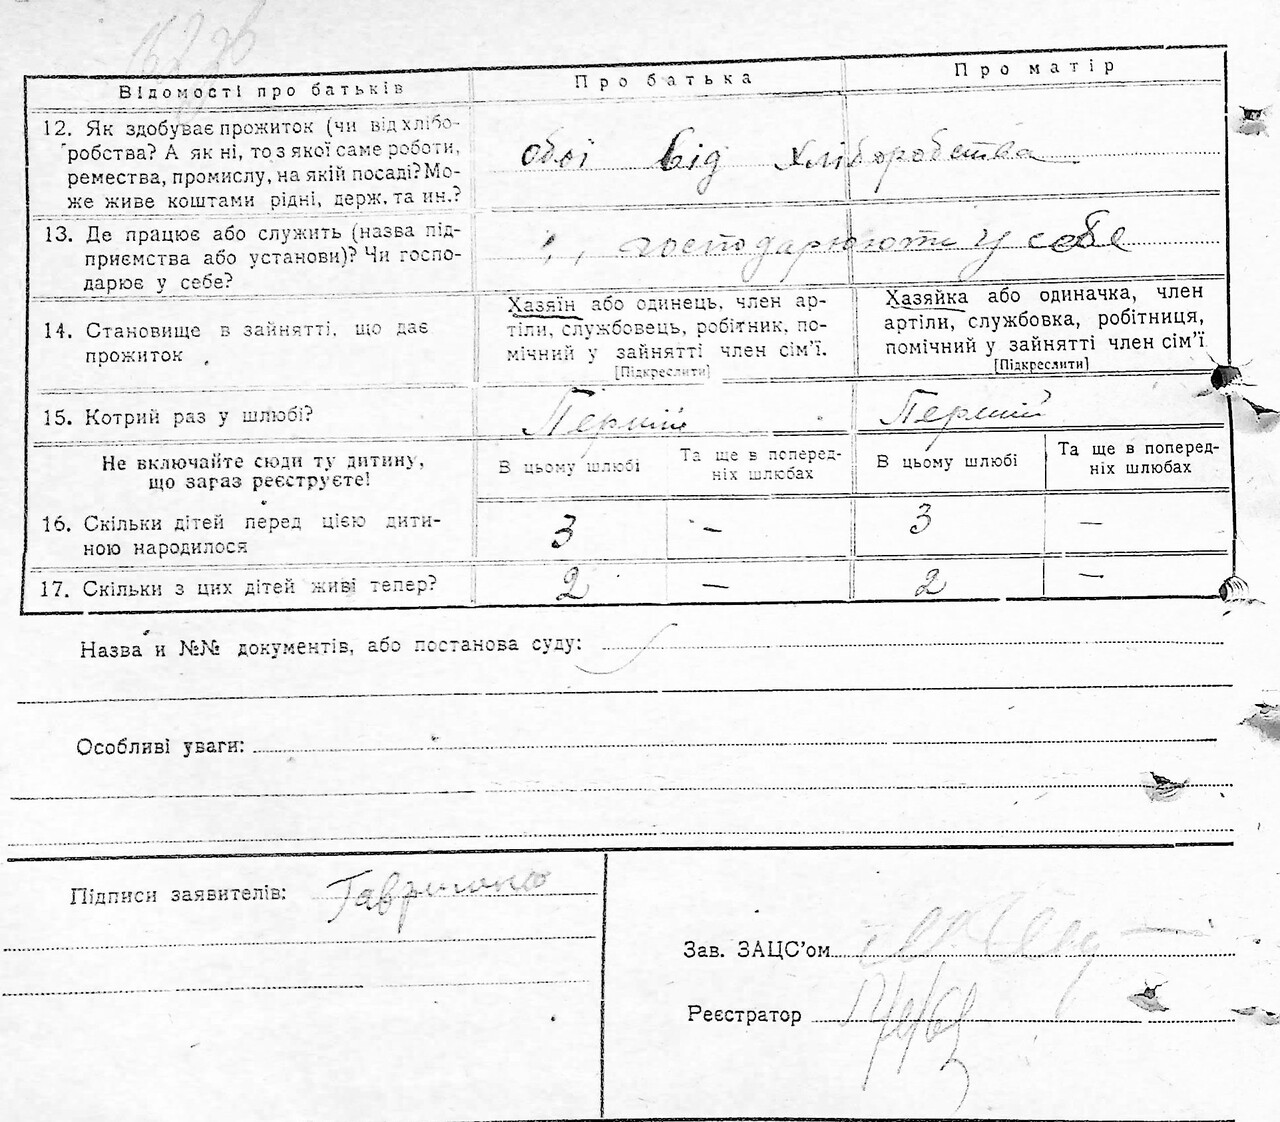 Відомості про батьків
Про батька
Про матір
12. Як здобуває прожиток (чи від хлібо-
робства? А як ні, то з якої саме роботи,
ремества, промислу, на якій посаді? Мо-
же живе коштами рідні, держ. та ин.?
обоі від хліборобства
13. Де працює або служить (назва під-
приємства або установи)? Чи госпо-
дарює у себе?
" господарюють у себе
14. Становище в зайнятті, що дає
прожиток
Хазяїн або одинець, член ар-
тіли, службовець, робітник, по-
мічний у зайнятті член сім'ї.
[Підкреслити]
Хазяйка або одиначка, член
артіли, службовка, робітниця,
помічний у зайнятті член сім'ї
[Підкреслити]
15. Котрий раз у шлюбі?
Перший
Перший
Не включайте сюди ту дитину,
що зараз реєструєте!
В цьому шлюбі
Та ще в поперед-
ніх шлюбах
В цьому шлюбі
Та ще в поперед-
ніх шлюбах
16. Скільки дітей перед цією дити-
ною народилося
3 – 3 –
17. Скільки з цих дітей живі тепер?
2 – 2 –
Назва и №№ документів, або постанова суду:
Особливі уваги:
Підписи заявителів:
Зав. ЗАЦС'ом
Реєстратор